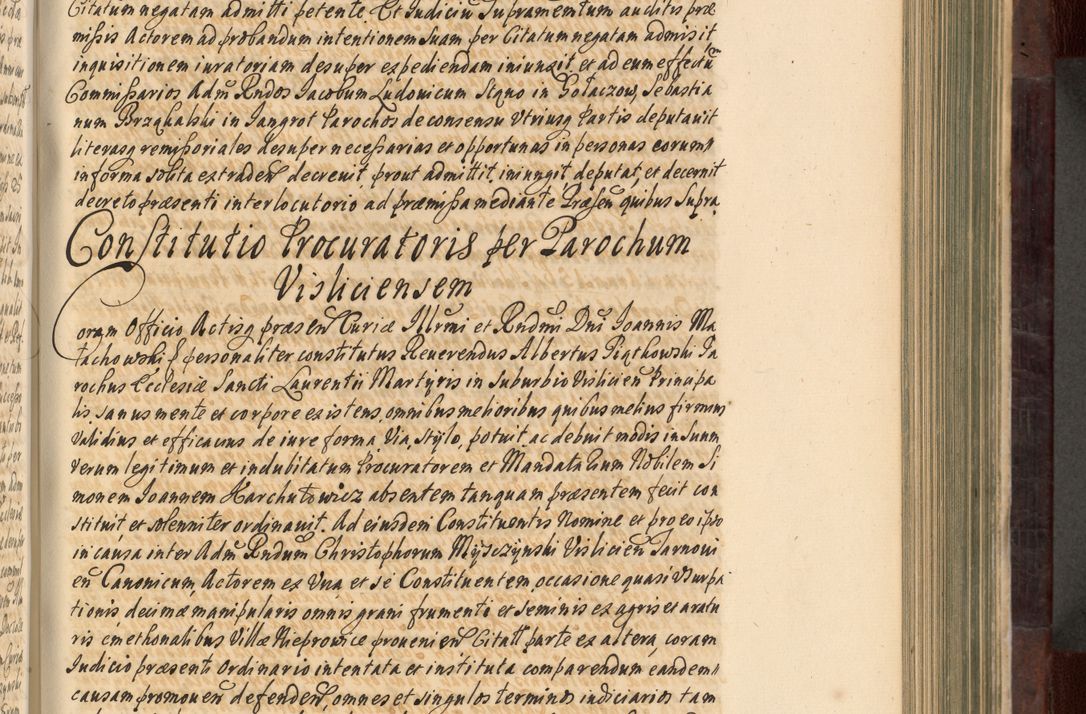 Citatum negatam admitti petente Et Iudiciũ Supramentum auditis præ
mißis Actorem ad probandum intentionem suam per Citatum negatam admisit
inquisitionem iuratoriam desuper expediendam iniunxit, et ad eum effectũ
Commißarios Adm̃ Rndos Iacobum Ludovicum Stęno in Gołaczow, Sebastia
num Brząkalski in Jangrot Parochos de consensu Utriusq Partis deputavit
literasq remißoriales desuper neceßarias et opportunas in personas eorum
in forma solita extraden̄ decreuit, prout admittit, iniungit, deputat, et decernit
decreto præsenti interlocutorio ad præmißa mediante Præsen̄ quibus Supra
Constitutio Procuratoris per Parochum
Visliciensem
Coram Officio Actisq præsen̄ Curiæ Illrmi et Rndmi Dni Ioannis Ma
łachowski p personaliter constitutus Reuerendus Albertus Piątkowski Pa
rochus Ecclesiæ Sancti Laurentii Martyris in Suburbio Vislicien̄ Principa
lis, sanus mente et corpore existens, omnibus melioribus quibus melius firmius
Validius et efficacius de iure forma, Via, stylo, potuit, ac debuit modis in suum
Verum legitimum et indubitatum Procuratorem et Mandatarium Nobilem Si
monem Ioannem Karchutowicz absentem tanquam præsentem fecit con
stituit, et solenniter ordinauit. Ad eiusdem Constituentis Nomine et pro eo ipso
in causa inter Adm̃ Rndum Christophorum Mysczynski Vislicien̄ Tarnovi
en̄ Canonicum, Actorem ex Vna, et se Constituentem, occasione quasi Vsurpa
tionis, decimæ manipularis omnis grani frumenti et seminis ex agris et aratu
ris cmethonalibus Villæ Nieprowice provenien̄ Citatũ parte ex altera, coram
Iudicio præsenti Ordinario intentata et instituta comparendum eandem
causam promouen̄ defenden̄, omnes et singulos terminos iudiciarios tam